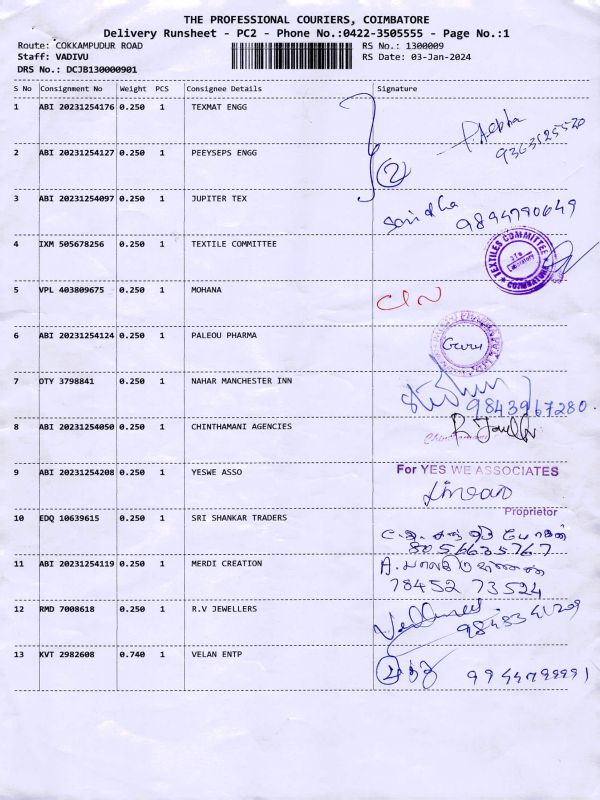 THE PROFESSIONAL COURIERS, COIMBATORE
Delivery Runsheet - PC2 - Phone No.:0422-3505555 - Page No.:1
Route: COKKAMPUDUR ROAD RS No.: 1300009
Staff: VADIVU RS Date: 03-Jan-2024
DRS No.: DCJB130000901
S No Consignment No Weight PCS Consignee Details Signature
1 ABI 20231254176 0.250 1 TEXMAT ENGG
2 ABI 20231254127 0.250 1 PEEYSEPS ENGG
2
3 ABI 20231254097 0.250 1 JUPITER TEX
9894790649
4 IXM 505678256 0.250 1 TEXTILE COMMITTEE
TEXTILES COMMITTEE
COIMBATORE
5 VPL 403809675 0.250 1 MOHANA
6 ABI 20231254124 0.250 1 PALEOU PHARMA
Guru
7 DTY 3798841 0.250 1 NAHAR MANCHESTER INN
9843967280.
8 ABI 20231254050 0.250 1 CHINTHAMANI AGENCIES
9 ABI 20231254208 0.250 1 YESWE ASSO For YES WE ASSOCIATES
Proprietor
10 EDQ 10639615 0.250 1 SRI SHANKAR TRADERS
8056635767
11 ABI 20231254119 0.250 1 MERDI CREATION
78452 73524
12 RMD 7008618 0.250 1 R.V JEWELLERS
13 KVT 2982608 0.740 1 VELAN ENTP